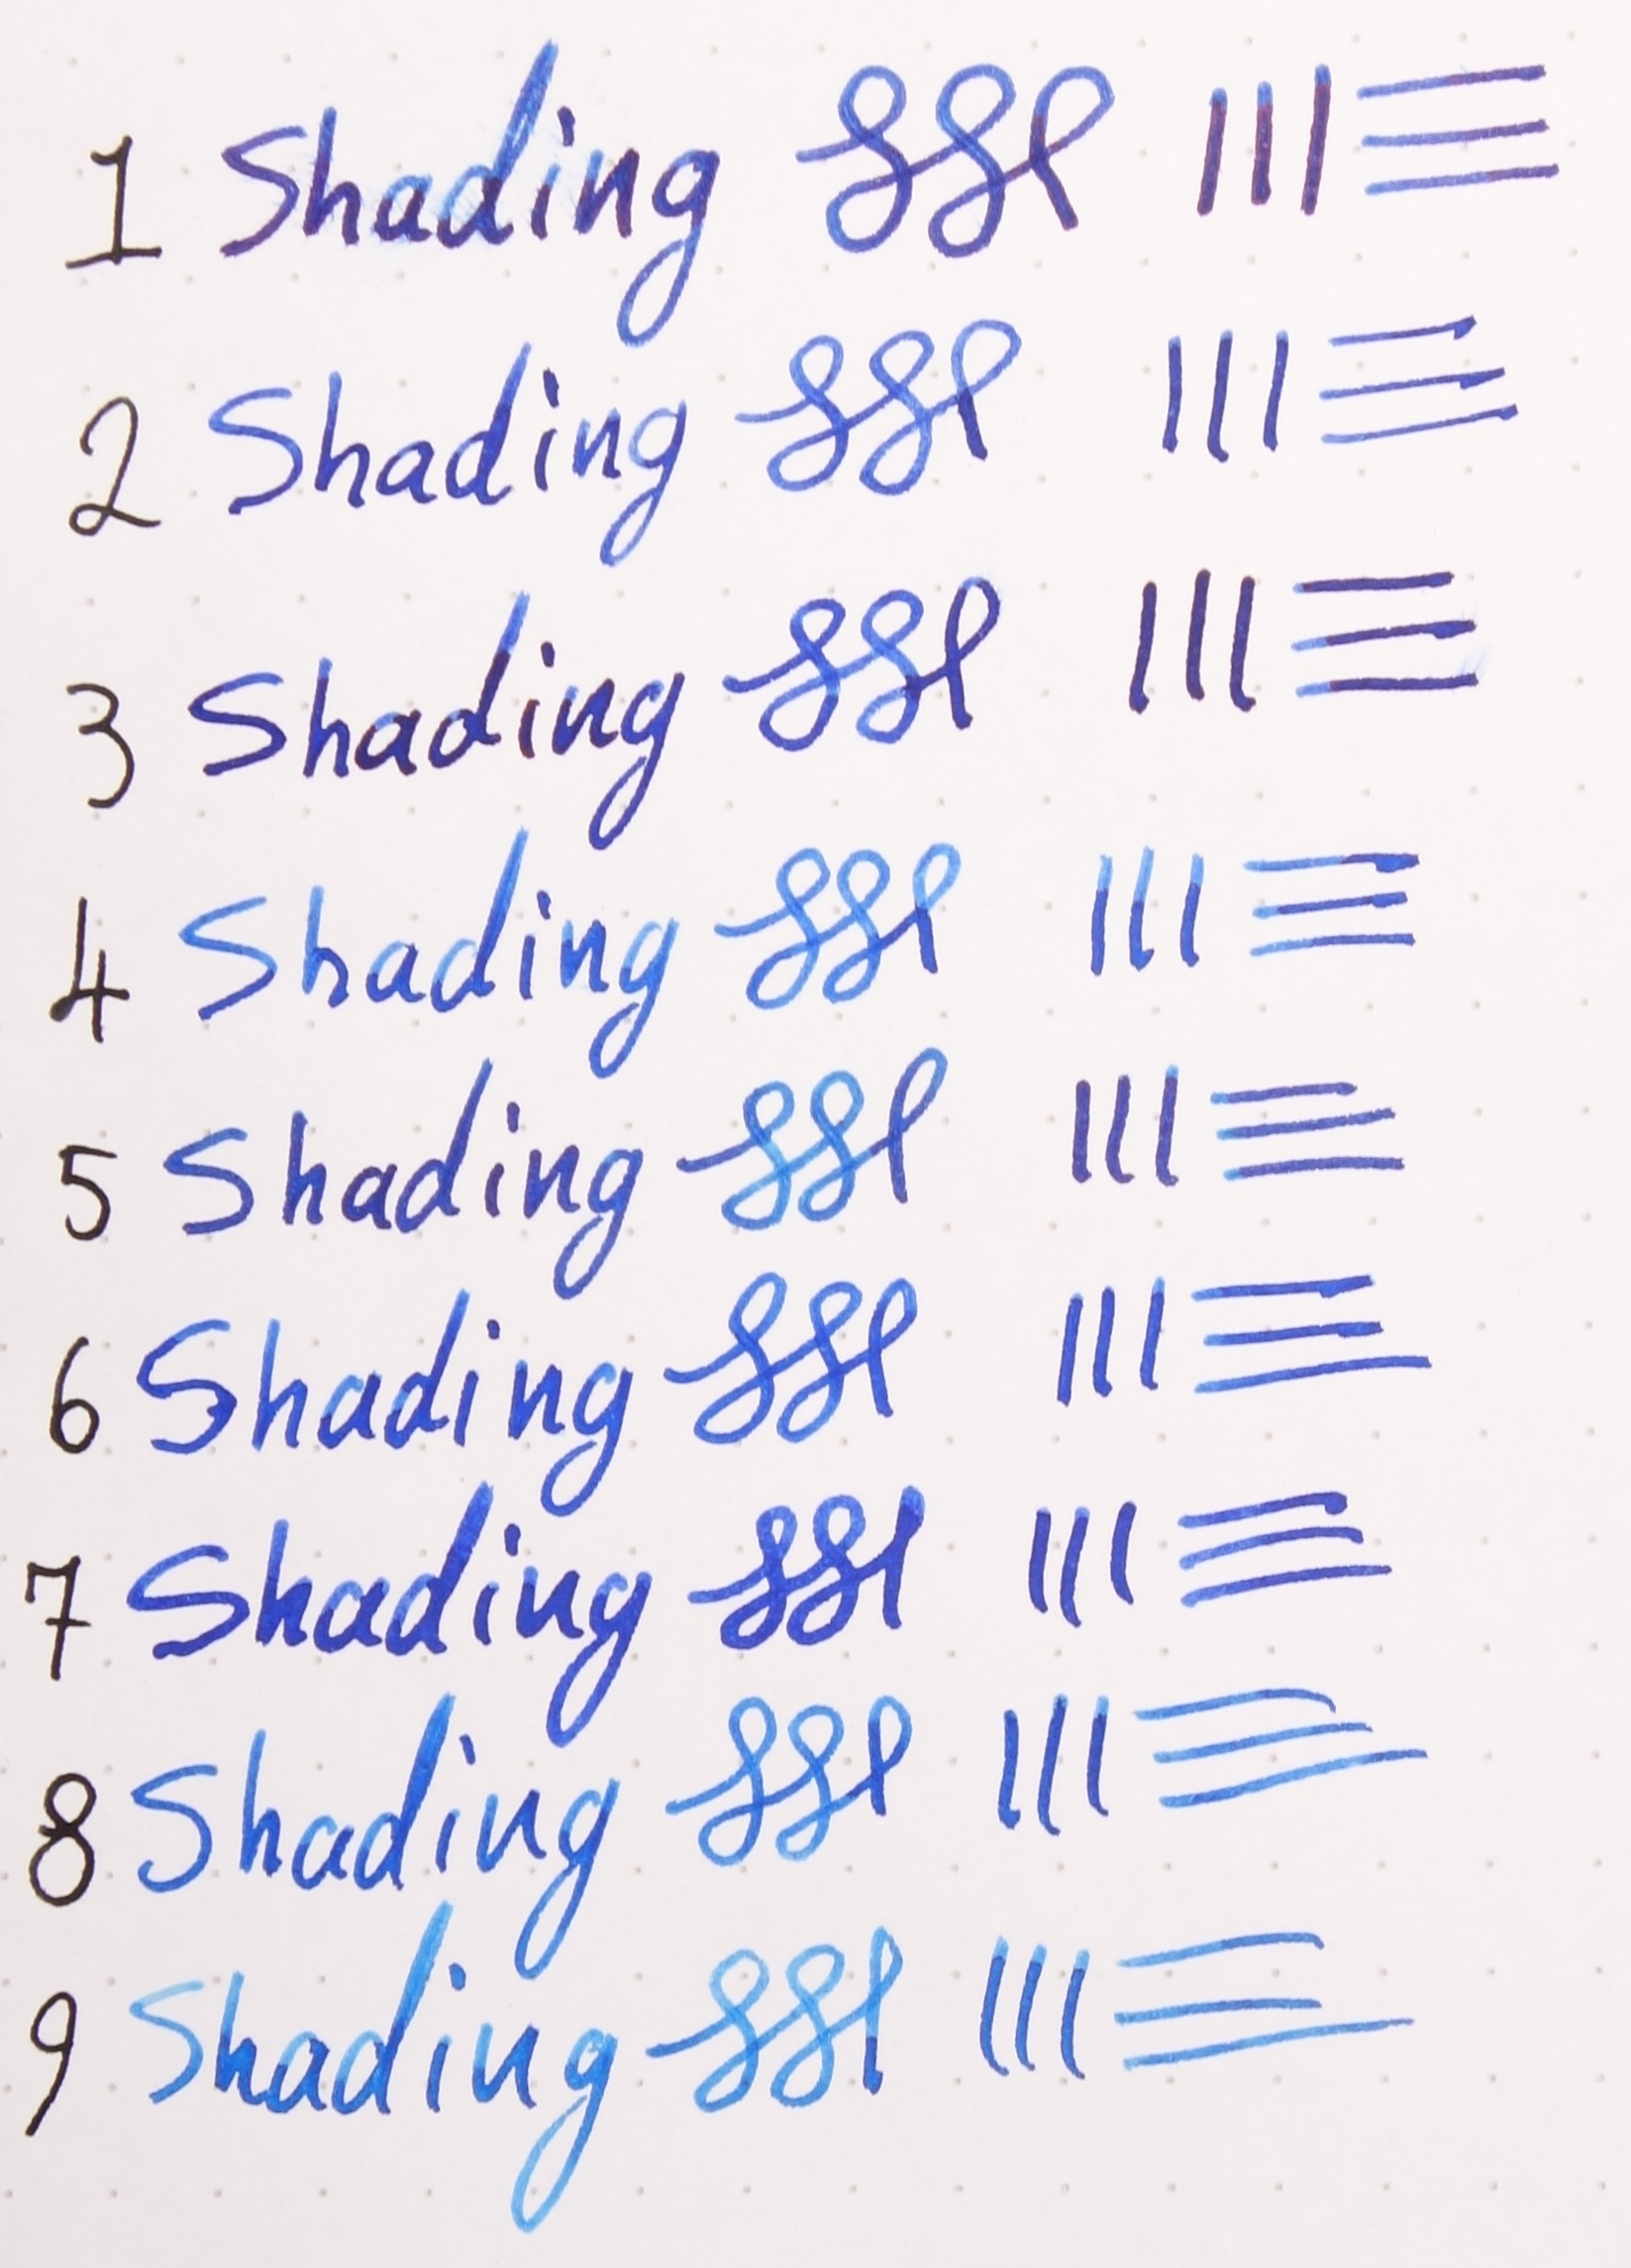 1 Shading
2 Shading
3 Shading
4 Shading
5 Shading
6 Shading
7 Shading
8 Shading
9 Shading